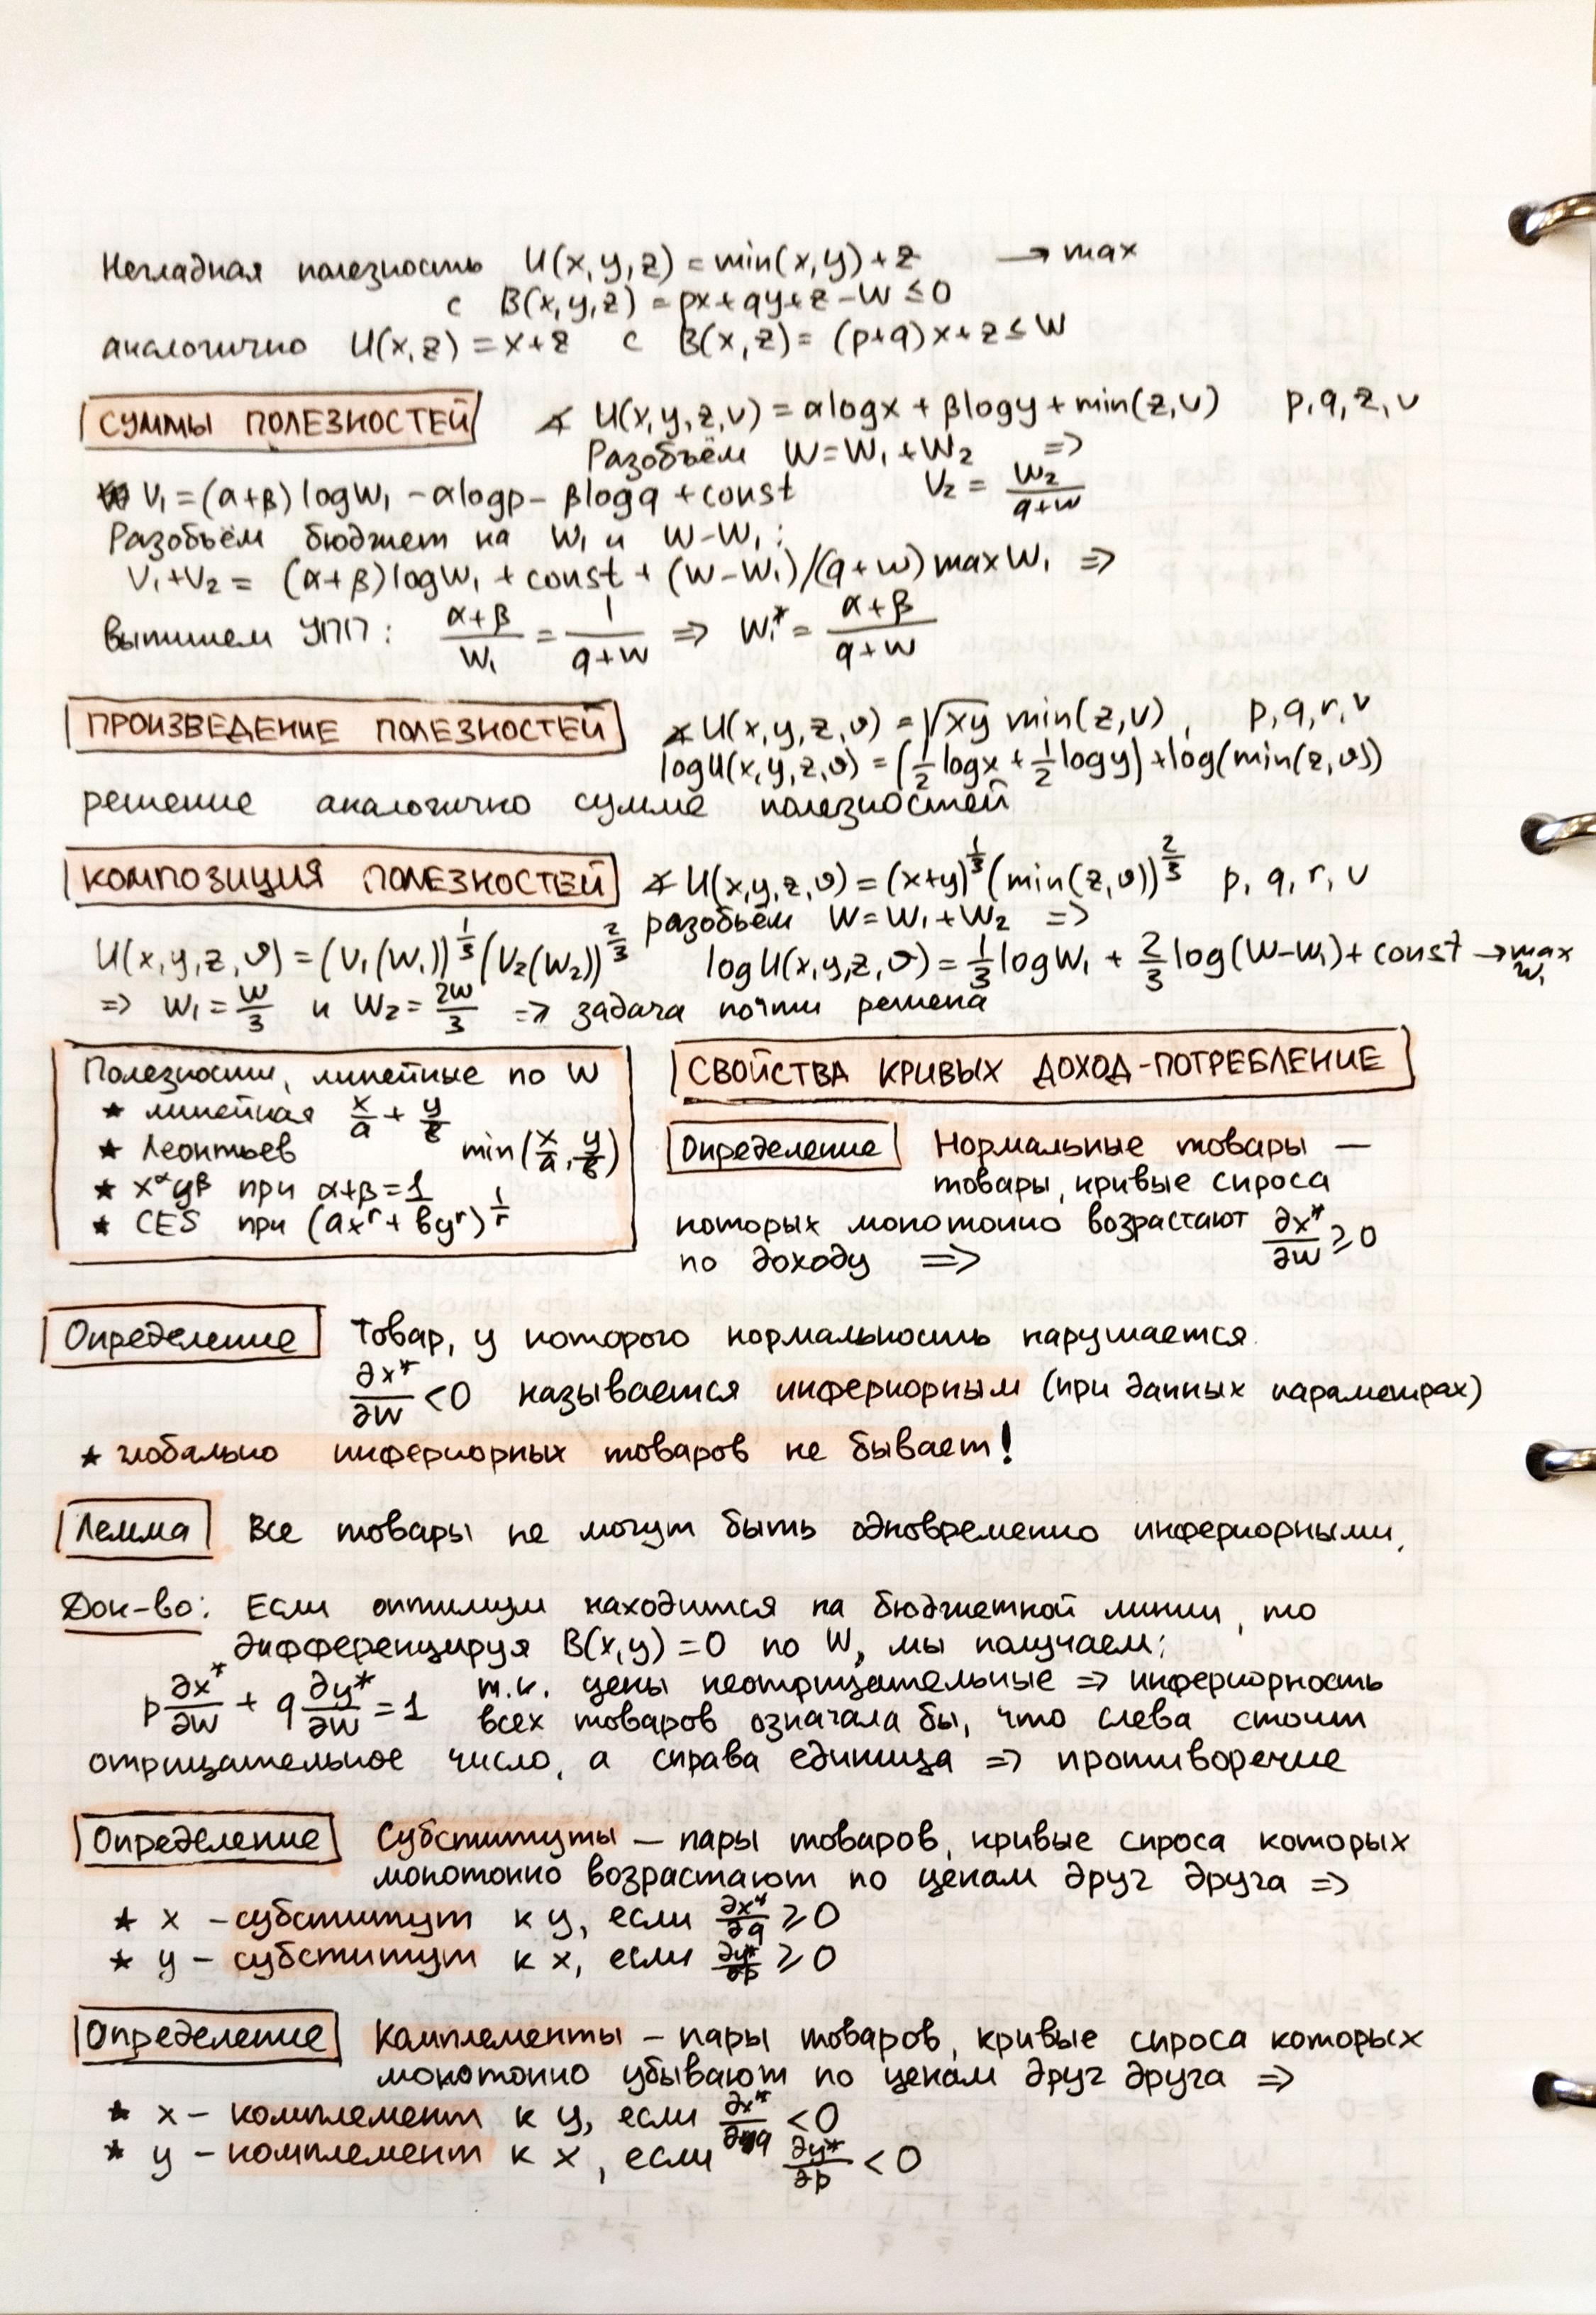 Негладкая полезность U(x,y,z) = min(x,y)+z → max
с B(x,y,z) = px+qy+z-W ≤ 0
аналогично U(x,z) = x+z с B(x,z) = (p+q)x+z ≤ W
СУММЫ ПОЛЕЗНОСТЕЙ ∢ U(x,y,z,v) = αlogx + βlogy + min(z,v) p,q,z,v
Разобъём W=W₁+W₂ =>
V₁=(α+β)logW₁ - αlogp - βlogq + const V₂ = W₂/(q+w)
Разобъём бюджет на W₁ и W-W₁:
V₁+V₂ = (α+β)logW₁ + const + (W-W₁)/(q+w) max W₁ =>
выпишем УПП: (α+β)/W₁ = 1/(q+w) => W₁* = (α+β)/(q+w)
ПРОИЗВЕДЕНИЕ ПОЛЕЗНОСТЕЙ ∢ U(x,y,z,ϑ) = √xy min(z,v), p,q,r,v
logU(x,y,z,ϑ) = (1/2 logx + 1/2 logy) + log(min(z,ϑ))
решение аналогично сумме полезностей
КОМПОЗИЦИЯ ПОЛЕЗНОСТЕЙ ∢ U(x,y,z,ϑ) = (x+y)^(1/3) (min(z,ϑ))^(2/3) p, q, r, v
разобъём W=W₁+W₂ =>
U(x,y,z,ϑ) = (V₁(W₁))^(1/3) (V₂(W₂))^(2/3) logU(x,y,z,ϑ) = 1/3 logW₁ + 2/3 log(W-W₁) + const → max W₁
=> W₁ = W/3 и W₂ = 2W/3 => задача почти решена
Полезности, линейные по W
★ линейная x/a + y/b
★ Леонтьев min(x/a, y/b)
★ x^α y^β при α+β=1
★ CES при (ax^r + by^r)^(1/r)
СВОЙСТВА КРИВЫХ ДОХОД-ПОТРЕБЛЕНИЕ
Определение Нормальные товары —
товары, кривые спроса
которых монотонно возрастают ∂x*/∂W ≥ 0
по доходу =>
Определение Товар, у которого нормальность нарушается
∂x*/∂W < 0 называется инфериорным (при данных параметрах)
★ глобально инфериорных товаров не бывает!
Лемма Все товары не могут быть одновременно инфериорными.
Док-во: Если оптимум находится на бюджетной линии, то
дифференцируя B(x,y)=0 по W, мы получаем:
p ∂x*/∂W + q ∂y*/∂W = 1 т.к. цены неотрицательные => инфериорность
всех товаров означала бы, что слева стоит
отрицательное число, а справа единица => противоречие
Определение Субституты — пары товаров, кривые спроса которых
монотонно возрастают по ценам друг друга =>
★ x - субститут к y, если ∂x*/∂q ≥ 0
★ y - субститут к x, если ∂y*/∂p ≥ 0
Определение Комплементы - пары товаров, кривые спроса которых
монотонно убывают по ценам друг друга =>
★ x - комплемент к y, если ∂x*/∂q < 0
★ y - комплемент к x, если ∂y*/∂p < 0